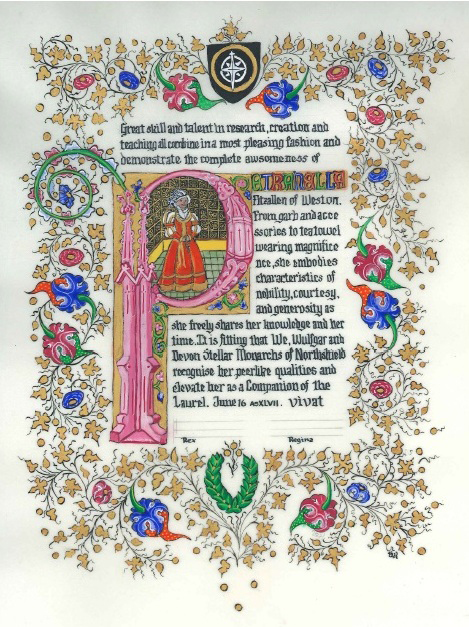 Great skill and talent in research, creation and
teaching all combine in a most pleasing fashion and
demonstrate the complete awsomeness of
PETRANELLA
Fitzallen of Weston.
From garb and acce
ssories to tea towel
wearing magnifice
nce, she embodies
characteristics of
nobility, courtesy,
and generosity as
she freely shares her knowledge and her
time. It is fitting that We, Wulfgar and
Devon Stellar Monarchs of Northshield
recognise her peerlike qualities and
elevate her as a Companion of the
Laurel. June 16 ASXLVII. vivat
Rex Regina